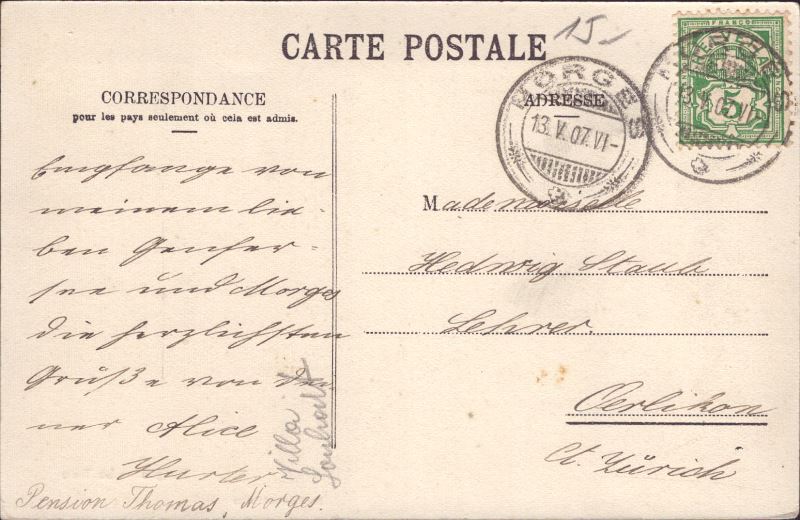 15.-
CARTE POSTALE
FRANCO
5
MORGES
13.V.07.VI-
CORRESPONDANCE
pour les pays seulement où cela est admis.
ADRESSE
Empfange von
meinem lie-
ben Genfer-
see und Morges
die herzlichsten
Grüße von Dei-
ner Alice
Hurter
Pension Thomas, Morges.
Villa
Mademoiselle
Hedwig Staub
Lehrer.
Oerlikon
Ct. Zürich